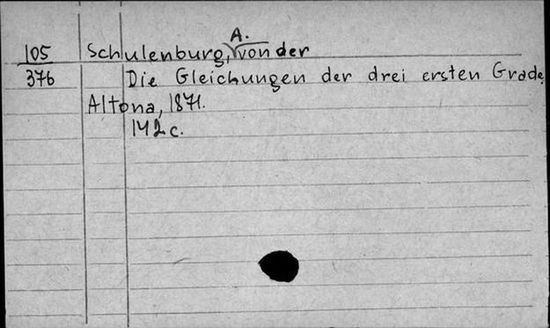 105 Schulenburg, A. von der
376 Die Gleichungen der drei ersten Grade.
Altona, 1871.
142 c.